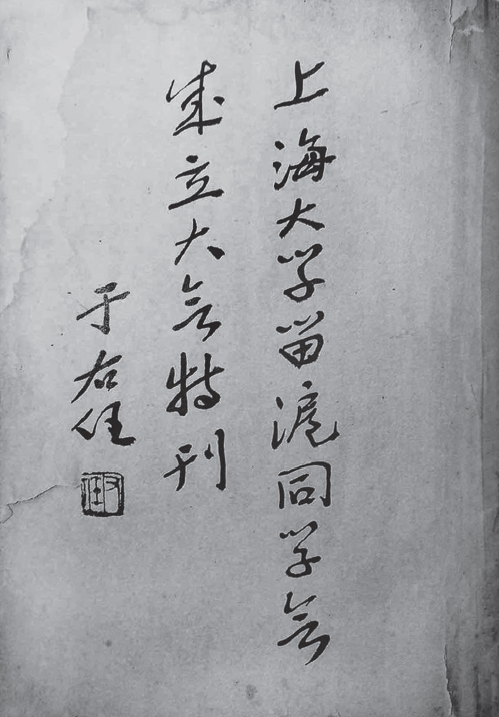 上海大学留沪同学会
成立大会特刊
于右任
右任